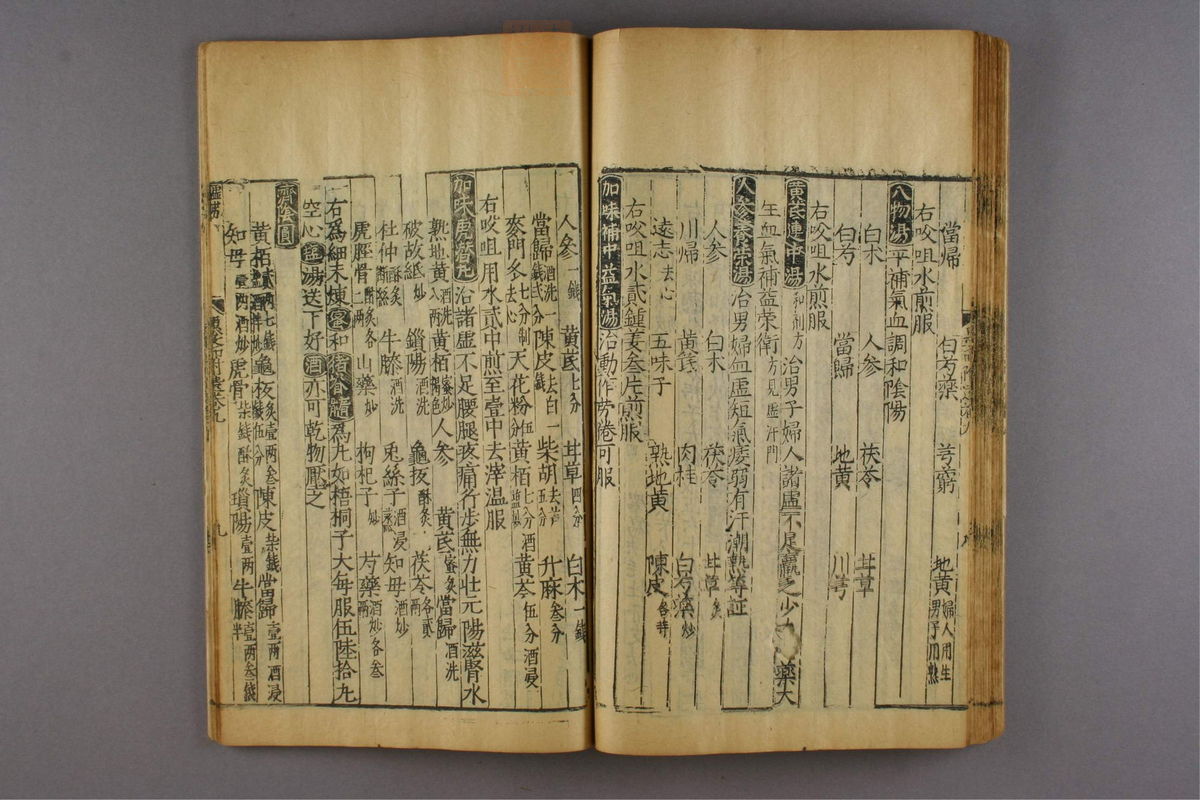 當歸 白芍藥 芎藭 地黄婦人用生男子用熟
右㕮咀水煎服
八物湯 平補氣血調和陰陽
白朮 人參 茯苓 甘草
白芍 當歸 地黄 川芎
右㕮咀水煎服
黄茋建中湯 方 治男子婦人諸虛不足羸乏少力 藥大
生血氣補益荣衛方見虛汗門
人參養荣湯 治男婦血虛短氣疲弱有汗潮熱等証
人參 白朮 茯苓 甘草炙
川歸 黄茋 肉桂 白芍藥炒
遠志去心 五味子 熟地黄 陳皮各等
右㕮咀水貳鍾姜叁片煎服
加味補中益氣湯 治動作劳倦可服
人參一錢 黄茋七分 甘草四分 白朮一錢
當歸酒洗一錢 陳皮去白一錢 柴胡去芦五分 升麻叁分
麥門冬去心 天花粉伍分 黄栢七分 黄芩伍分酒浸
右㕮咀用水貳中煎至壹中去滓温服
加味虎潛丸 治諸虛不足腰腿疼痛行步無力壮元陽滋腎水
熟地黄酒洗八兩 黄栢蜜炒褐色 人參 黄茋蜜炙 當歸酒洗
破故紙炒 鎖陽酒洗 龜板酥炙 茯苓各貳兩
杜仲酥炙 牛膝酒洗 兎絲子酒浸 知母酒炒
虎脛骨酥炙二兩 山藥炒 枸杞子炒 芍藥酒炒各叁兩
右爲細末煉蜜和猪脊髓爲丸如梧桐子大每服伍陸拾丸
空心鹽湯送下好酒亦可乾物壓之
濟陰圓
黄栢貳兩七錢 龜板炙壹兩叁錢伍分 陳皮柒錢 當歸壹兩酒浸
知母壹兩酒炒 虎骨柒錢酥炙 鎖陽壹兩 牛膝壹兩叁錢半
虛勞
九